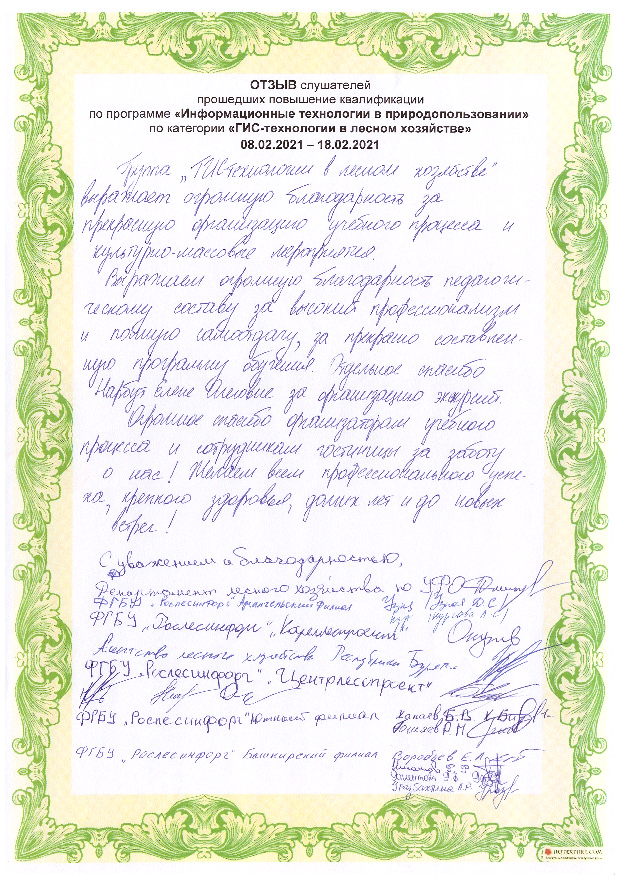 ОТЗЫВ слушателей
прошедших повышение квалификации
по программе «Информационные технологии в природопользовании»
по категории «ГИС-технологии в лесном хозяйстве»
08.02.2021 – 18.02.2021
Группа „ГИС-технологии в лесном хозяйстве"
выражает огромную благодарность за
прекрасную организацию учебного процесса и
культурно-массовые мероприятия.
Выражаем огромную благодарность педагоги-
ческому составу за высокий профессионализм
и полную самоотдачу, за прекрасно составлен-
ную программу обучения. Отдельное спасибо
Нарбут Елене Олеговне за организацию экскурсий.
Огромное спасибо организаторам учебного
процесса и сотрудникам гостиницы за заботу
о нас! Желаем всем профессионального успе-
ха, крепкого здоровья, долгих лет и до новых
встреч!
С уважением и благодарностью,
Департамент лесного хозяйства по УФО
ФГБУ „Рослесинфорг" Архангельский филиал
ФГБУ „Рослесинфорг" „Кареллеспроект"
Агентство лесного хозяйства Республики
ФГБУ „Рослесинфорг" „Центрлеспроект"
ФГБУ „Рослесинфорг" Южный филиал
ФГБУ „Рослесинфорг" Башкирский филиал Воробьев Е.